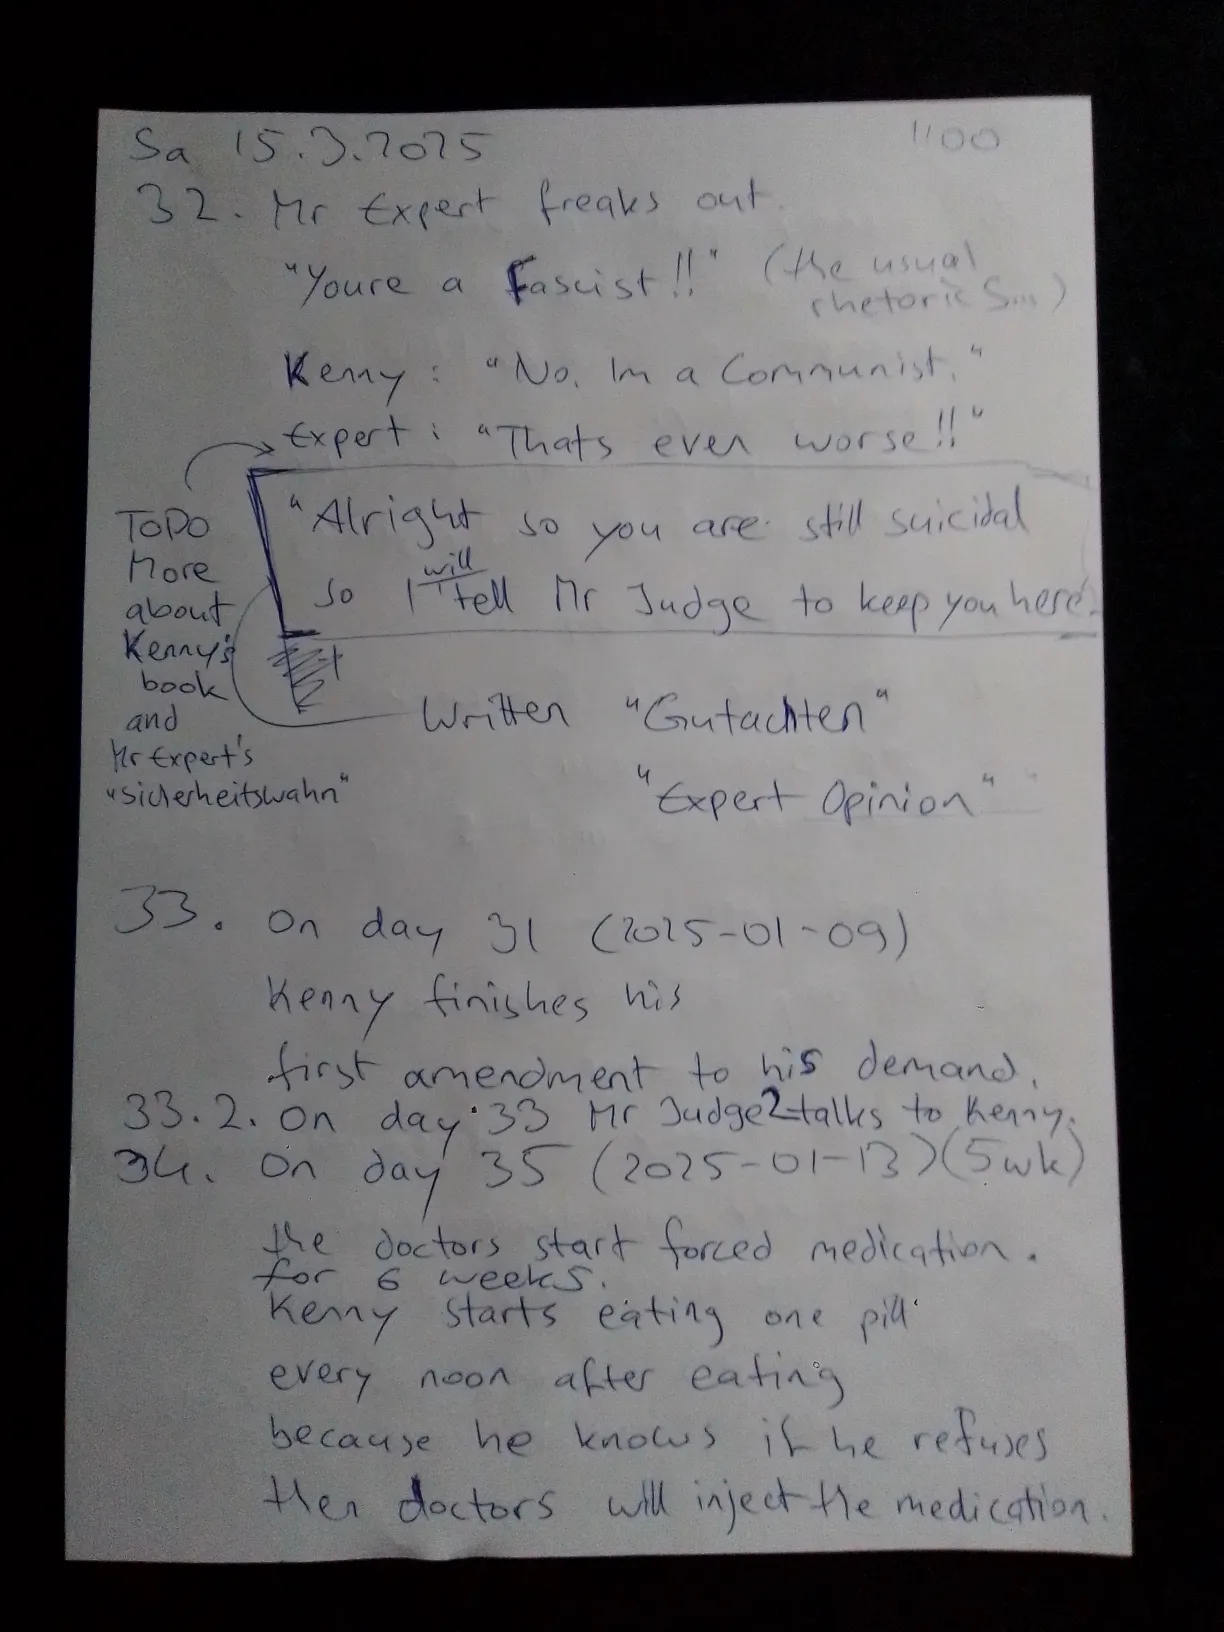 Sa 15.3.2025 1100
32. Mr Expert freaks out.
"Youre a Fascist!!" (the usual
rhetorics...)
Kenny: "No. Im a Communist."
Expert: "Thats even worse!!"
"Alright so you are still suicidal
so I will tell Mr Judge to keep you here.
TODO
More
about
Kenny's
book
and
Mr Expert's
"Sicherheitswahn"
Written "Gutachten"
"Expert Opinion"
33. On day 31 (2025-01-09)
Kenny finishes his
first amendment to his demand.
33.2. On day 33 Mr Judge2 talks to Kenny.
34. On day 35 (2025-01-13) (5wk)
the doctors start forced medication.
for 6 weeks.
Kenny starts eating one pill
every noon after eating
because he knows if he refuses
then doctors will inject the medication.